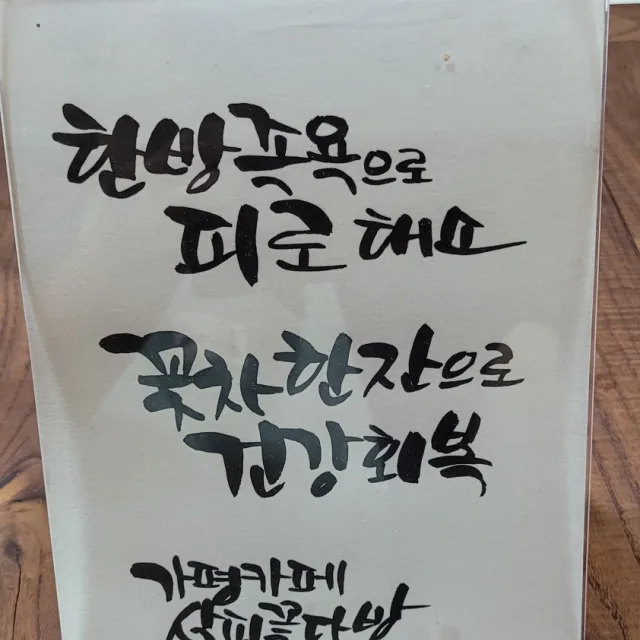 한방족욕으로
피로해소
꽃차한잔으로
건강회복
가평카페
설피꽃다방